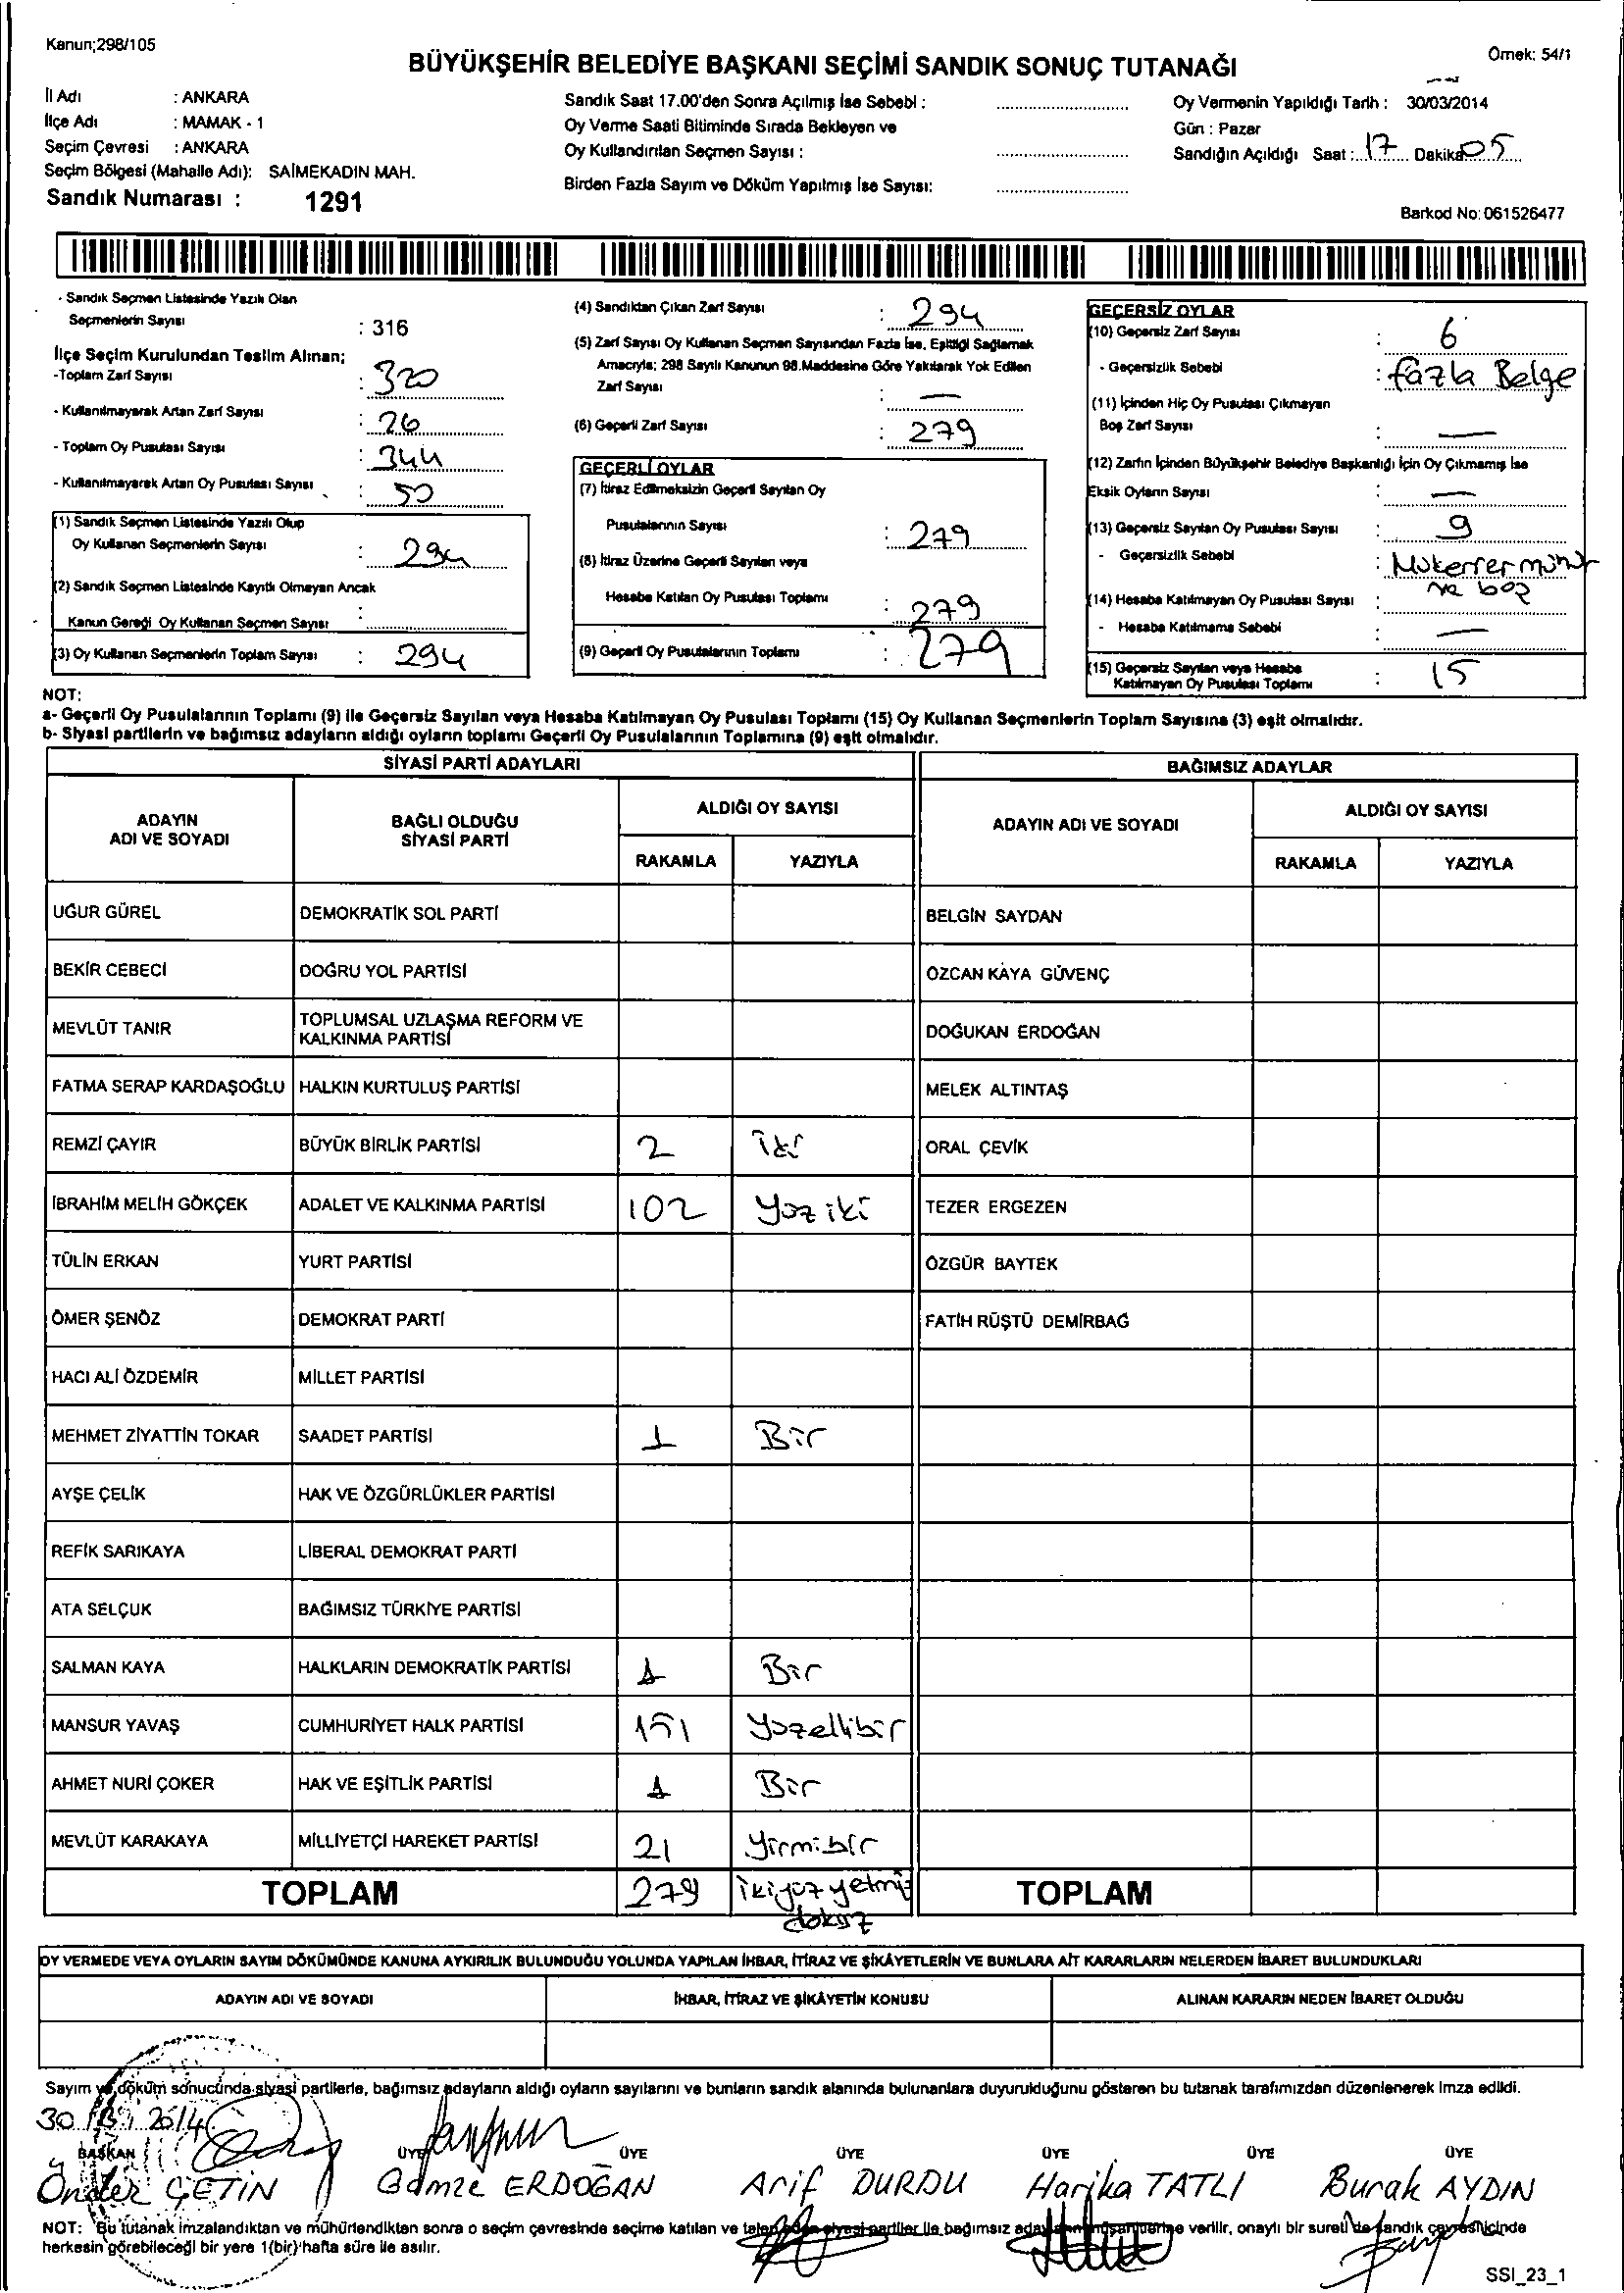 Kanun;298/105
Örnek: 54/1
BÜYÜKŞEHİR BELEDİYE BAŞKANI SEÇİMİ SANDIK SONUÇ TUTANAĞI
İl Adı : ANKARA
İlçe Adı : MAMAK - 1
Seçim Çevresi : ANKARA
Seçim Bölgesi (Mahalle Adı): SAİMEKADIN MAH.
Sandık Numarası : 1291
Sandık Saat 17.00'den Sonra Açılmış İse Sebebi :
Oy Verme Saati Bitiminde Sırada Bekleyen ve
Oy Kullandırılan Seçmen Sayısı :
Birden Fazla Sayım ve Döküm Yapılmış İse Sayısı:
Oy Vermenin Yapıldığı Tarih : 30/03/2014
Gün : Pazar
Sandığın Açıldığı Saat : 17 Dakika 05
Barkod No: 061526477
- Sandık Seçmen Listesinde Yazılı Olan
Seçmenlerin Sayısı : 316
İlçe Seçim Kurulundan Teslim Alınan;
-Toplam Zarf Sayısı : 320
- Kullanılmayarak Artan Zarf Sayısı : 26
- Toplam Oy Pusulası Sayısı : 344
- Kullanılmayarak Artan Oy Pusulası Sayısı : 50
(1) Sandık Seçmen Listesinde Yazılı Olup
Oy Kullanan Seçmenlerin Sayısı : 294
(2) Sandık Seçmen Listesinde Kayıtlı Olmayan Ancak
Kanun Gereği Oy Kullanan Seçmen Sayısı :
(3) Oy Kullanan Seçmenlerin Toplam Sayısı : 294
(4) Sandıktan Çıkan Zarf Sayısı : 294
(5) Zarf Sayısı Oy Kullanan Seçmen Sayısından Fazla İse, Eşitliği Sağlamak
Amacıyla; 298 Sayılı Kanunun 98.Maddesine Göre Yakılarak Yok Edilen
Zarf Sayısı : —
(6) Geçerli Zarf Sayısı : 279
GEÇERLİ OYLAR
(7) İtiraz Edilmeksizin Geçerli Sayılan Oy
Pusulalarının Sayısı : 279
(8) İtiraz Üzerine Geçerli Sayılan veya
Hesaba Katılan Oy Pusulası Toplamı : 279
(9) Geçerli Oy Pusulalarının Toplamı : 279
GEÇERSİZ OYLAR
(10) Geçersiz Zarf Sayısı : 6
- Geçersizlik Sebebi : fazla Belge
(11) İçinden Hiç Oy Pusulası Çıkmayan
Boş Zarf Sayısı : —
(12) Zarfın İçinden Büyükşehir Belediye Başkanlığı İçin Oy Çıkmamış İse
Eksik Oyların Sayısı : —
(13) Geçersiz Sayılan Oy Pusulası Sayısı : 9
- Geçersizlik Sebebi : Mükerrer mühür
ve boş
(14) Hesaba Katılmayan Oy Pusulası Sayısı :
- Hesaba Katılmama Sebebi : —
(15) Geçersiz Sayılan veya Hesaba
Katılmayan Oy Pusulası Toplamı : 15
NOT:
a- Geçerli Oy Pusulalarının Toplamı (9) ile Geçersiz Sayılan veya Hesaba Katılmayan Oy Pusulası Toplamı (15) Oy Kullanan Seçmenlerin Toplam Sayısına (3) eşit olmalıdır.
b- Siyasi partilerin ve bağımsız adayların aldığı oyların toplamı Geçerli Oy Pusulalarının Toplamına (9) eşit olmalıdır.
SİYASİ PARTİ ADAYLARI
BAĞIMSIZ ADAYLAR
ADAYIN ADI VE SOYADI
BAĞLI OLDUĞU SİYASİ PARTİ
ALDIĞI OY SAYISI
RAKAMLA YAZIYLA
ADAYIN ADI VE SOYADI
ALDIĞI OY SAYISI
RAKAMLA YAZIYLA
UĞUR GÜREL DEMOKRATİK SOL PARTİ BELGİN SAYDAN
BEKİR CEBECİ DOĞRU YOL PARTİSİ ÖZCAN KAYA GÜVENÇ
MEVLÜT TANIR TOPLUMSAL UZLAŞMA REFORM VE KALKINMA PARTİSİ DOĞUKAN ERDOĞAN
FATMA SERAP KARDAŞOĞLU HALKIN KURTULUŞ PARTİSİ MELEK ALTINTAŞ
REMZİ ÇAYIR BÜYÜK BİRLİK PARTİSİ 2 İki ORAL ÇEVİK
İBRAHİM MELİH GÖKÇEK ADALET VE KALKINMA PARTİSİ 102 Yüz iki TEZER ERGEZEN
TÜLİN ERKAN YURT PARTİSİ ÖZGÜR BAYTEK
ÖMER ŞENÖZ DEMOKRAT PARTİ FATİH RÜŞTÜ DEMİRBAĞ
HACI ALİ ÖZDEMİR MİLLET PARTİSİ
MEHMET ZİYATTİN TOKAR SAADET PARTİSİ 1 Bir
AYŞE ÇELİK HAK VE ÖZGÜRLÜKLER PARTİSİ
REFİK SARIKAYA LİBERAL DEMOKRAT PARTİ
ATA SELÇUK BAĞIMSIZ TÜRKİYE PARTİSİ
SALMAN KAYA HALKLARIN DEMOKRATİK PARTİSİ 1 Bir
MANSUR YAVAŞ CUMHURİYET HALK PARTİSİ 151 Yüzellibir
AHMET NURİ ÇOKER HAK VE EŞİTLİK PARTİSİ 1 Bir
MEVLÜT KARAKAYA MİLLİYETÇİ HAREKET PARTİSİ 21 Yirmibir
TOPLAM 279 İkiyüz yetmiş dokuz TOPLAM
OY VERMEDE VEYA OYLARIN SAYIM DÖKÜMÜNDE KANUNA AYKIRILIK BULUNDUĞU YOLUNDA YAPILAN İHBAR, İTİRAZ VE ŞİKÂYETLERİN VE BUNLARA AİT KARARLARIN NELERDEN İBARET BULUNDUKLARI
ADAYIN ADI VE SOYADI İHBAR, İTİRAZ VE ŞİKÂYETİN KONUSU ALINAN KARARIN NEDEN İBARET OLDUĞU
Sayım ve döküm sonucunda siyasi partilerle, bağımsız adayların aldığı oyların sayılarını ve bunların sandık alanında bulunanlara duyurulduğunu gösteren bu tutanak tarafımızdan düzenlenerek imza edildi.
30 / 3 / 2014
BAŞKAN ÜYE ÜYE ÜYE ÜYE ÜYE ÜYE
Önder ÇETİN Gamze ERDOĞAN Arif DURDU Harika TATLI Burak AYDIN
NOT: Bu tutanak imzalandıktan ve mühürlendikten sonra o seçim çevresinde seçime katılan ve talep eden siyasi partiler ile bağımsız adayların müşahitlerine verilir, onaylı bir sureti de sandık çevresi içinde
herkesin görebileceği bir yere 1(bir) hafta süre ile asılır.
SSI_23_1